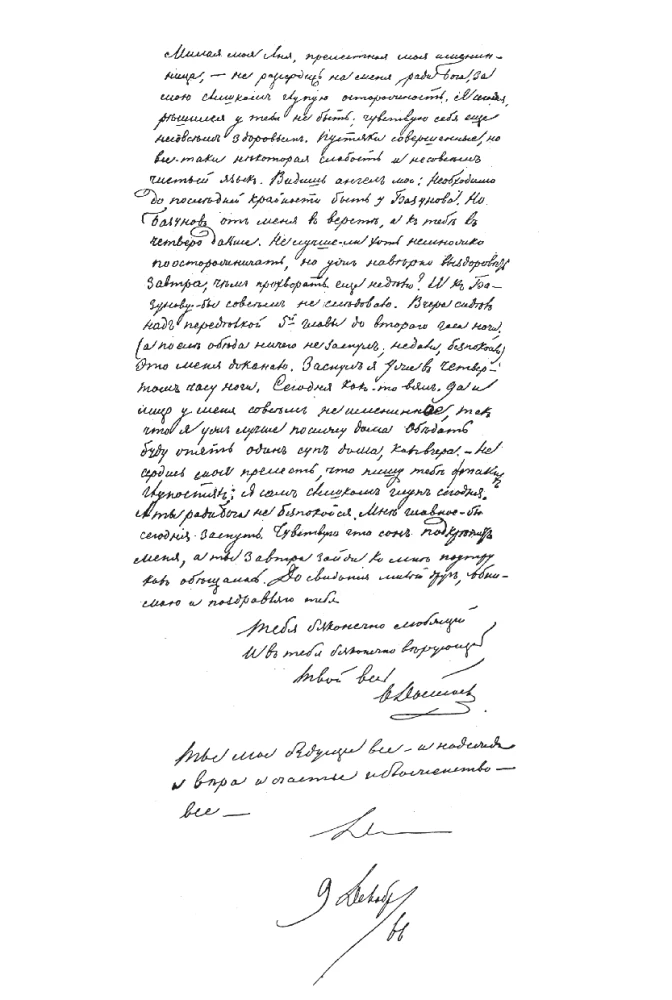 Милая моя Аня, прелестная моя именин-
ница, — не рассердись на меня ради Бога, за
мою слишком глупую осторожность. Я сегодня
рѣшился у тебя не быть; чувствую себя еще
несовсѣмъ здоровымъ. Пустяки совершенные, но
все-таки нѣкоторая слабость и несовсѣмъ
чистый языкъ. Видишь ангелъ мой: Необходимо
до послѣдней крайности быть у Базунова. Но
Базуновъ отъ меня въ верстѣ, а къ тебѣ въ
четверо дальше. Не лучше-ли хоть немножко
поосторожничать, но ужъ навѣрно выздоровѣть
завтра, чѣмъ прохворать еще недѣлю? И къ Ба-
зунову-бы совсѣмъ не слѣдовало. Вчера сидѣлъ
надъ передѣлкой 5й главы до втораго часа ночи,
(а послѣ обѣда ничего не заснулъ; не дали, безпокоили)
Это меня доканало. Заснулъ я уже въ четвер-
томъ часу ночи. Сегодня какъ-то вялъ, да и
лицо у меня совсѣмъ не именинное, такъ
что я ужъ лучше посижу дома. Обѣдать
буду опять одинъ супъ дома, какъ вчера. — Не
сердись моя прелесть, что пишу тебѣ о такихъ
глупостяхъ: я самъ слишкомъ глупъ сегодня.
А ты ради бога не безпокойся. Мнѣ главное-бы
сегодня заснуть. Чувствую что сонъ подкрѣпитъ
меня, а ты завтра зайди ко мнѣ поутру
какъ обѣщала. До свиданія милый другъ, обни-
маю и поздравляю тебя
Тебя безконечно любящій
И въ тебя безконечно вѣрующій
Твой весь
Ѳ Достоевск
Ты мое будущее все — и надежда
и вѣра и счастье и блаженство —
все —
9 Декабр/66